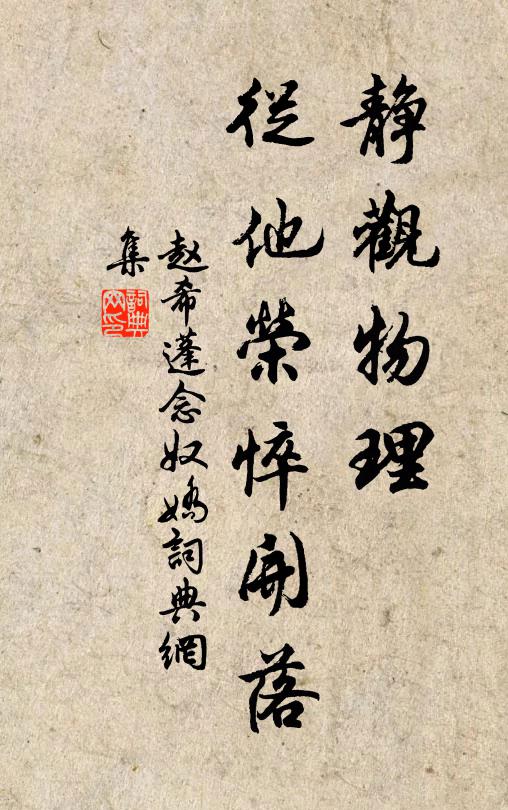 靜觀物理
從他榮悴開落
赵希蓬念奴嬌詞典網
集
詞典
网印